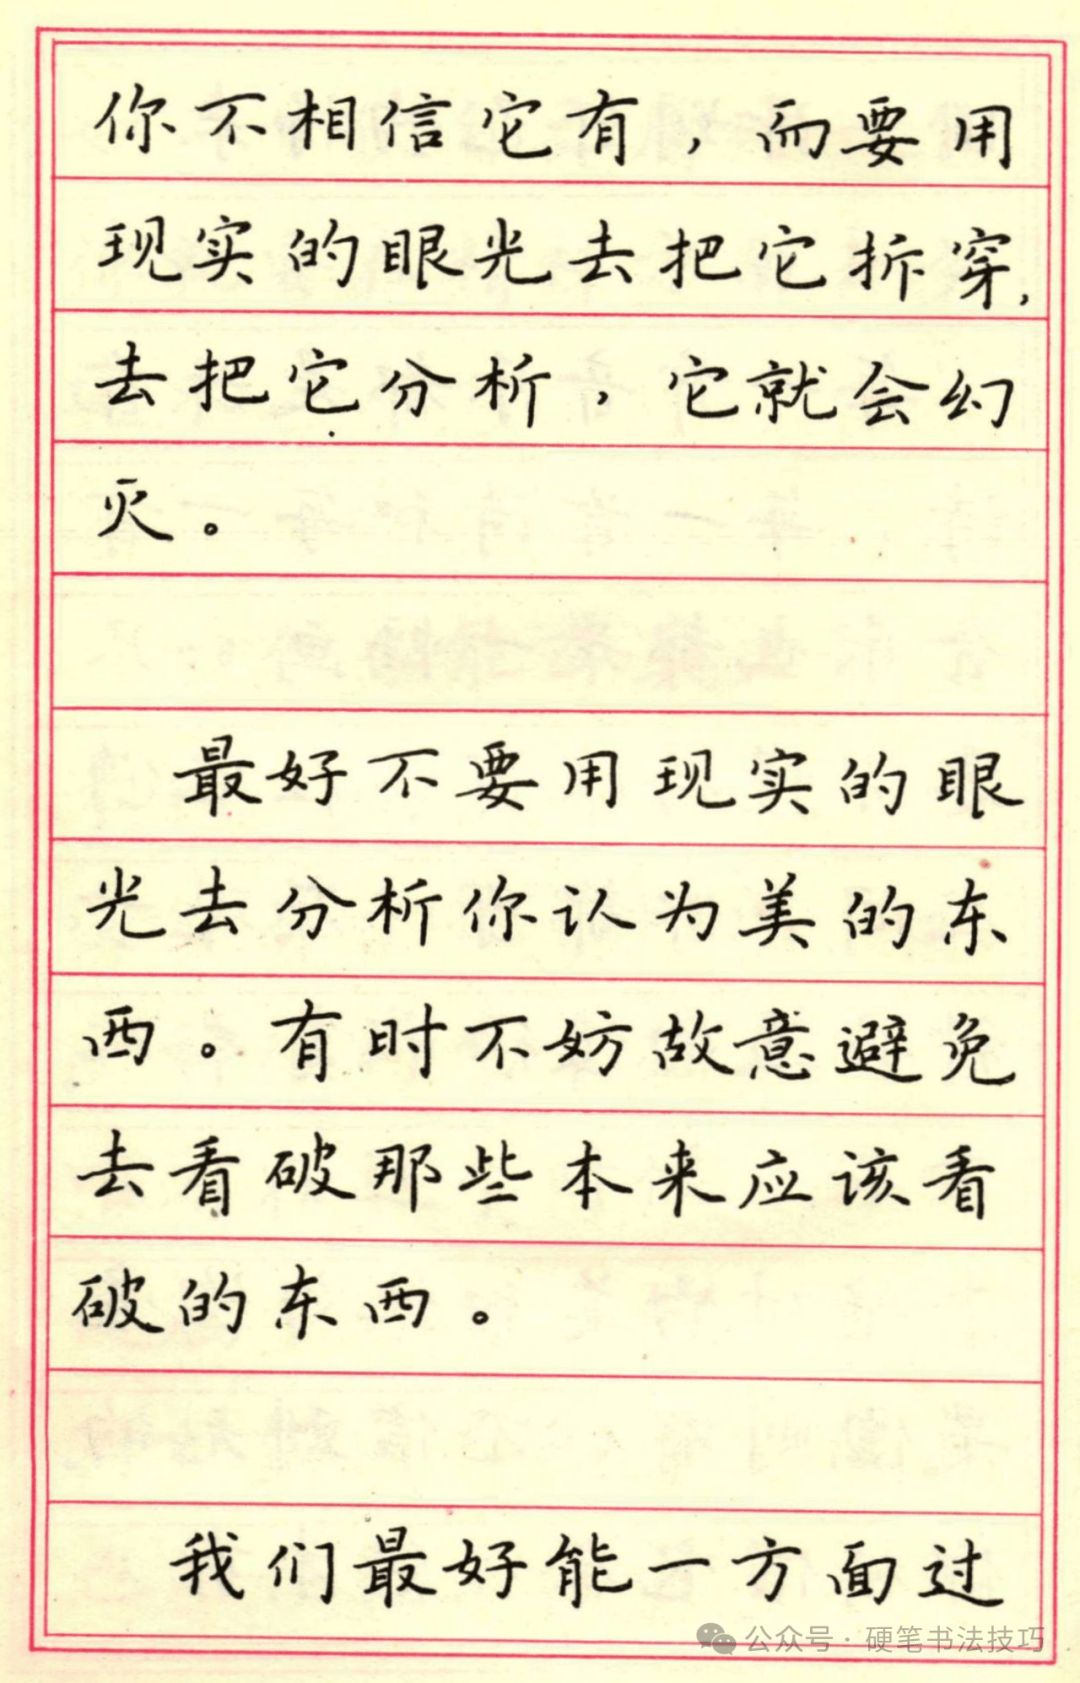 你不相信它有，而要用
现实的眼光去把它拆穿，
去把它分析，它就会幻
灭。
最好不要用现实的眼
光去分析你认为美的东
西。有时不妨故意避免
去看破那些本来应该看
破的东西。
我们最好能一方面过
公众号·硬笔书法技巧